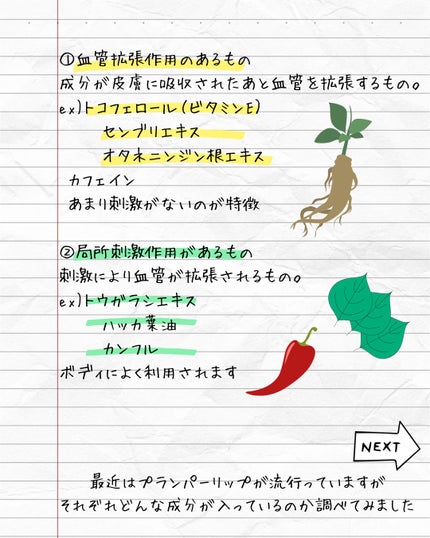 ①血管拡張作用のあるもの
成分が皮膚に吸収されたあと血管を拡張するもの。
ex)トコフェロール(ビタミンE)
センブリエキス
オタネニンジン根エキス
カフェイン
あまり刺激がないのが特徴
②局所刺激作用があるもの
刺激により血管が拡張されるもの。
ex)トウガラシエキス
ハッカ葉油
カンフル
ボディによく利用されます
NEXT
最近はプランパーリップが流行っていますが
それぞれどんな成分が入っているのか調べてみました